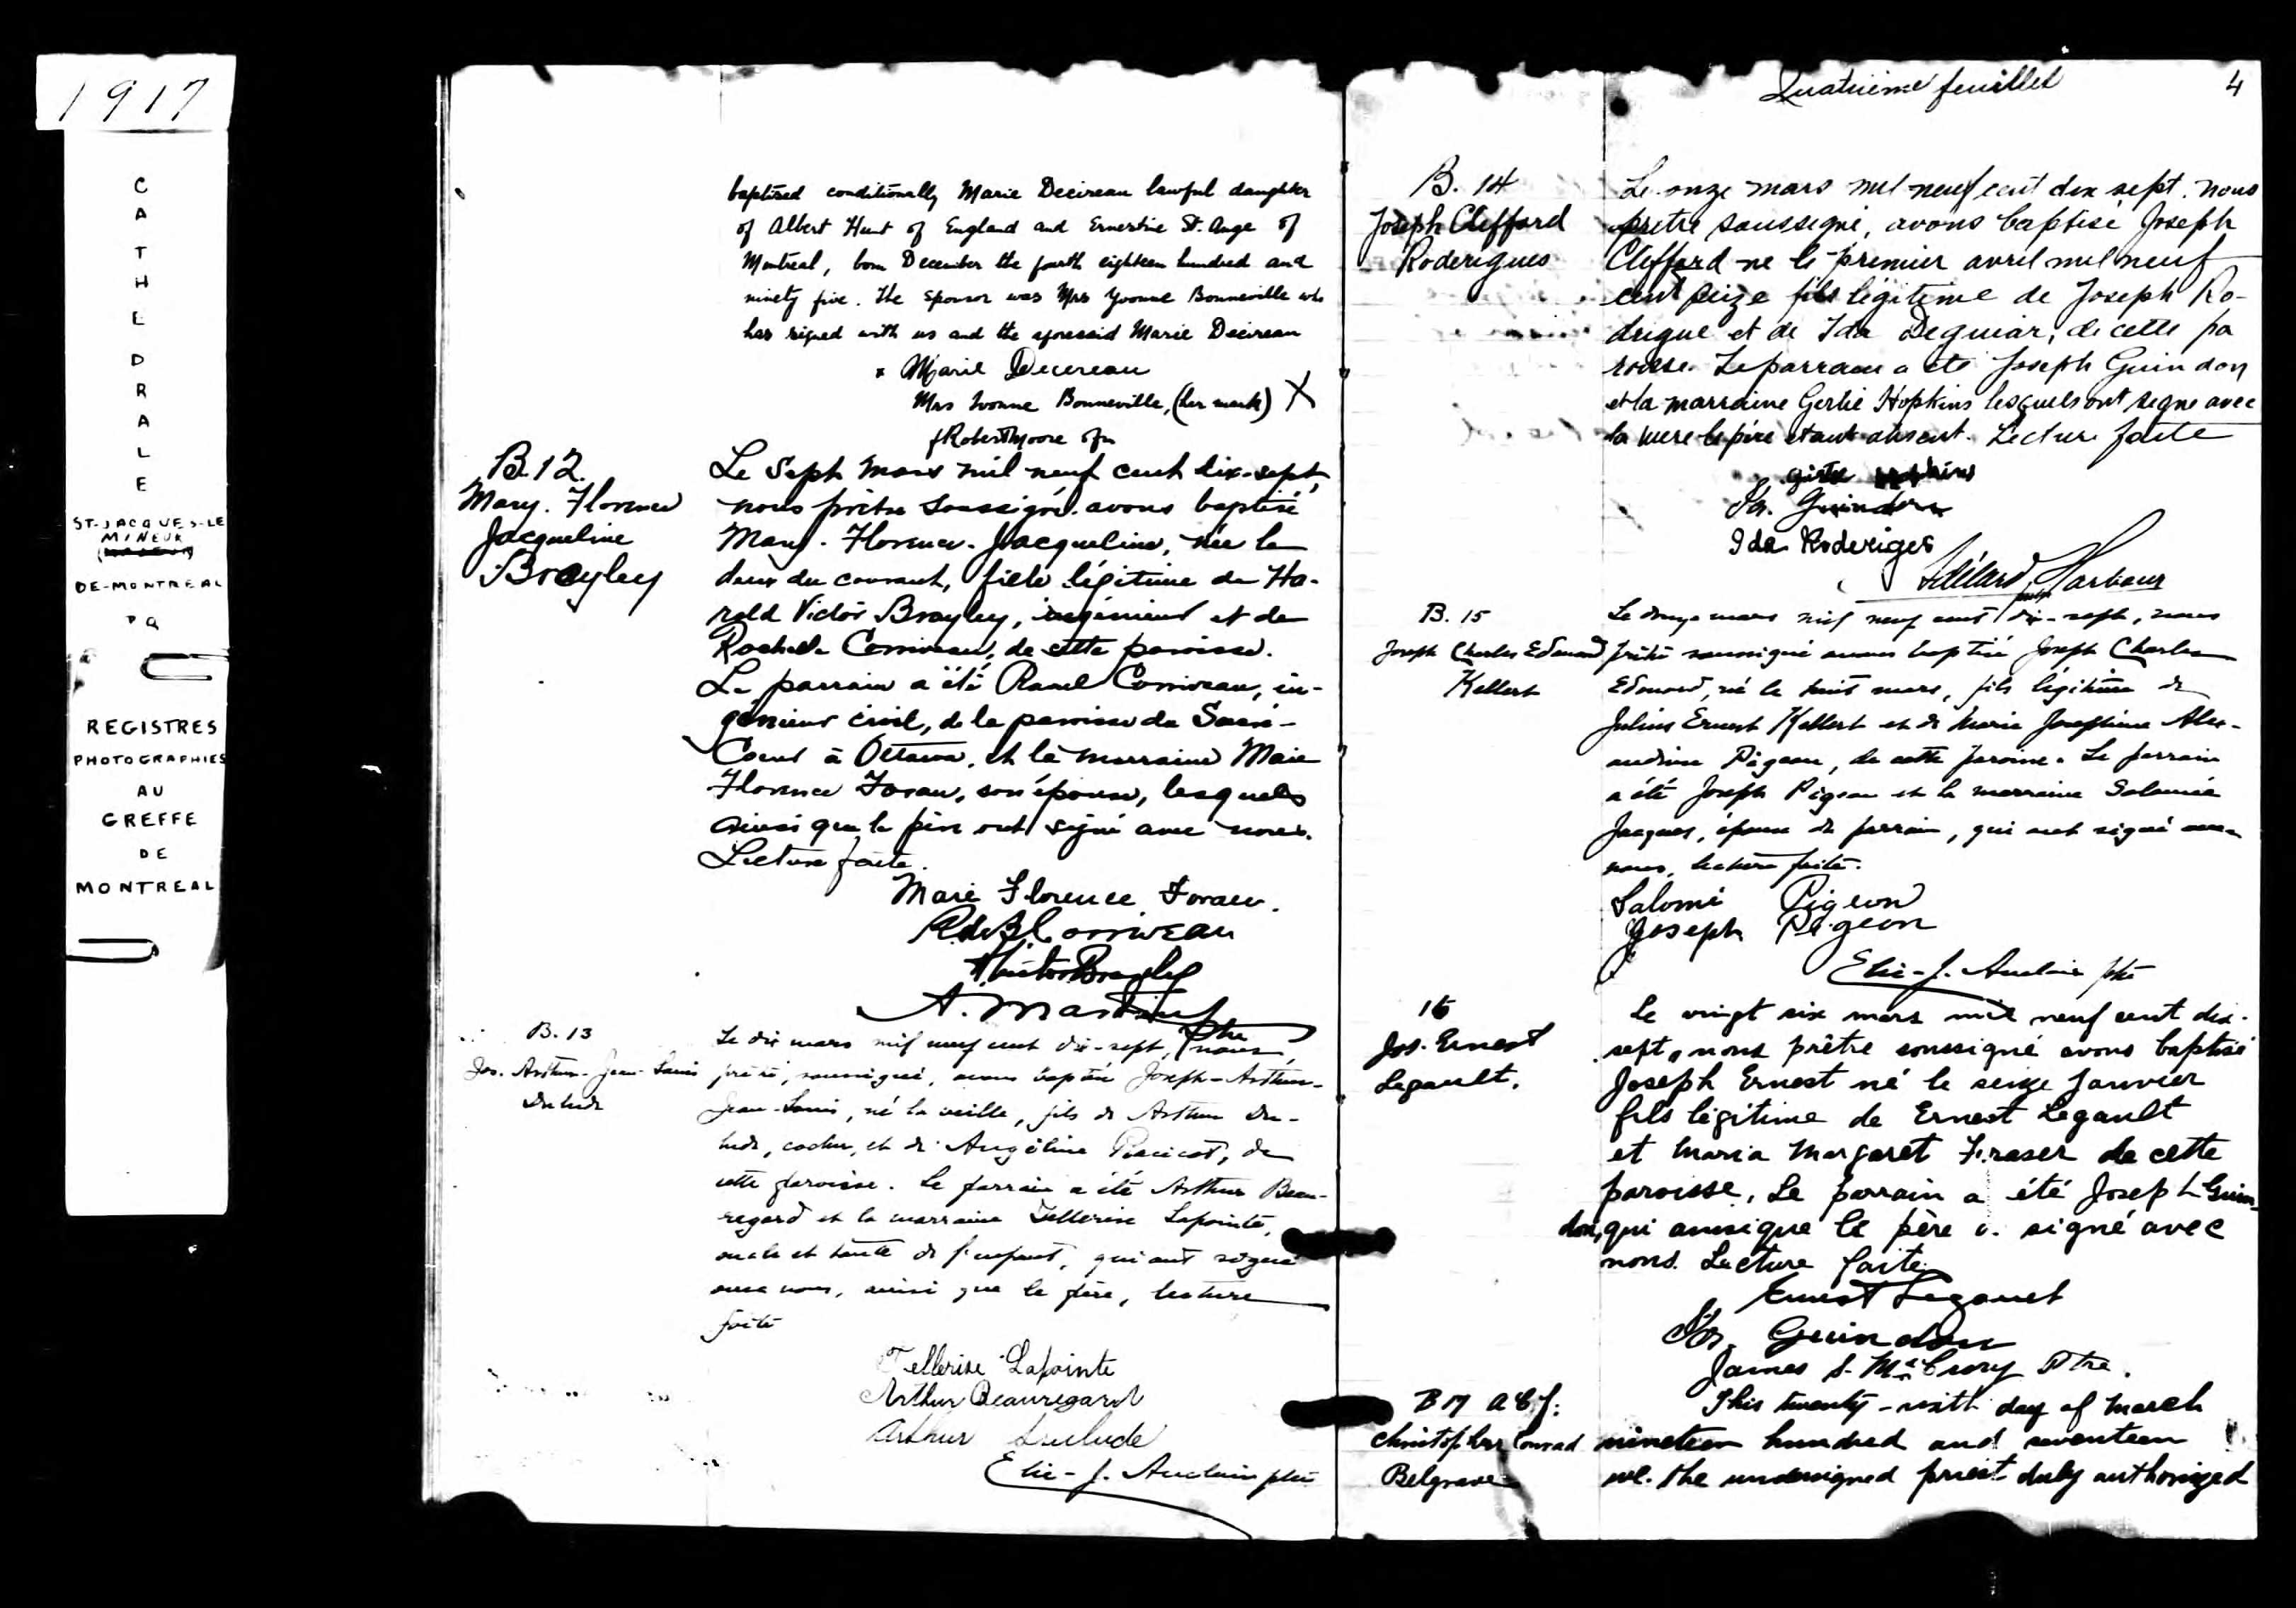 1917
CATHEDRALE
ST-JACQUES-LE
MINEUR
DE-MONTREAL
PQ
REGISTRES
PHOTOGRAPHIES
AU
GREFFE
DE
MONTREAL
baptized conditionally Marie Decireau lawful daughter
of Albert Hunt of England and Ernestine St. Ange of
Montreal, born December the fourth eighteen hundred and
ninety five. The sponsor was Mrs Yvonne Bonneville who
has signed with us and the aforesaid Marie Decireau
x Marie Decereau
Mrs Ivonne Bonneville, (her mark) X
f Robert Moore ofm
B.12.
Mary. Florence
Jacqueline
Brayley
Le Sept Mars mil neuf cent dix-sept,
nous prêtre soussigné avons baptisé
Mary-Florence-Jacqueline, née le
deux du courant, fille légitime de Ha-
rold Victor Brayley, ingénieur et de
Rachel Corriveau, de cette paroisse.
Le parrain a été Raoul Corriveau, in-
génieur civil, de la paroisse du Sacré-
Coeur à Ottawa, et la marraine Marie
Florence Foran, son épouse, lesquels
ainsi que le père ont signé avec nous.
Lecture faite.
Marie Florence Foran.
R. de B. Corriveau
H. Victor Brayley
A. Martin
ptre
B. 13
Jos. Arthur-Jean-Louis
Dulude
Le dix mars mil neuf cent dix-sept, nous,
prêtre, soussigné, avons baptisé Joseph-Arthur-
Jean-Louis, né la veille, fils de Arthur Du-
lude, cocher, et de Angélina Racicot, de
cette paroisse. Le parrain a été Arthur Beau-
regard et la marraine Tellerise Lapointe,
oncle et tante de l'enfant, qui ont signé
avec nous, ainsi que le père, lecture
faite
Tellerise Lapointe
Arthur Beauregard
Arthur Dulude
Elie-J. Auclair ptre
Quatrième feuillet 4
B. 14
Joseph Cleffard
Roderigues
Le onze mars mil neuf cent dix sept. nous
prêtre soussigné, avons baptisé Joseph
Cleffard né le premier avril mil neuf
cent seize fils légitime de Joseph Ro-
drigue et de Ida Deguiar, de cette pa
roisse. Le parrain a été Joseph Guindon
et la marraine Gertie Hopkins lesquels ont signé avec
la mère le père étant absent. Lecture faite
Jos. Guindon
Ida Roderiges
Adélard Harbour
ptre
B. 15
Joseph Charles Edouard
Kellert
Le douze mars mil neuf cent dix-sept, nous
prêtre soussigné avons baptisé Joseph Charles
Edouard, né le huit mars, fils légitime de
Julius Ernest Kellert et de Marie Josephine Alex-
andrine Pigeon, de cette paroisse. Le parrain
a été Joseph Pigeon et la marraine Salomée
Jacques, épouse du parrain, qui ont signé avec
nous, lecture faite.
Salomé Pigeon
Joseph Pigeon
Elie-J. Auclair ptre
16
Jos. Ernest
Legault.
Le vingt six mars mil neuf cent dix-
sept, nous prêtre soussigné avons baptisé
Joseph Ernest né le seize janvier
fils légitime de Ernest Legault
et Maria Margaret Fraser de cette
paroisse, Le parrain a été Joseph Guin-
don, qui ainsi que le père a signé avec
nous. Lecture faite.
Ernest Legault
Jos. Guindon
James S. McCrory Ptre.
B 17 A C J.
Christopher Conrad
Belgrave
This twenty-sixth day of March
nineteen hundred and seventeen
we. the undersigned priest duly authorized